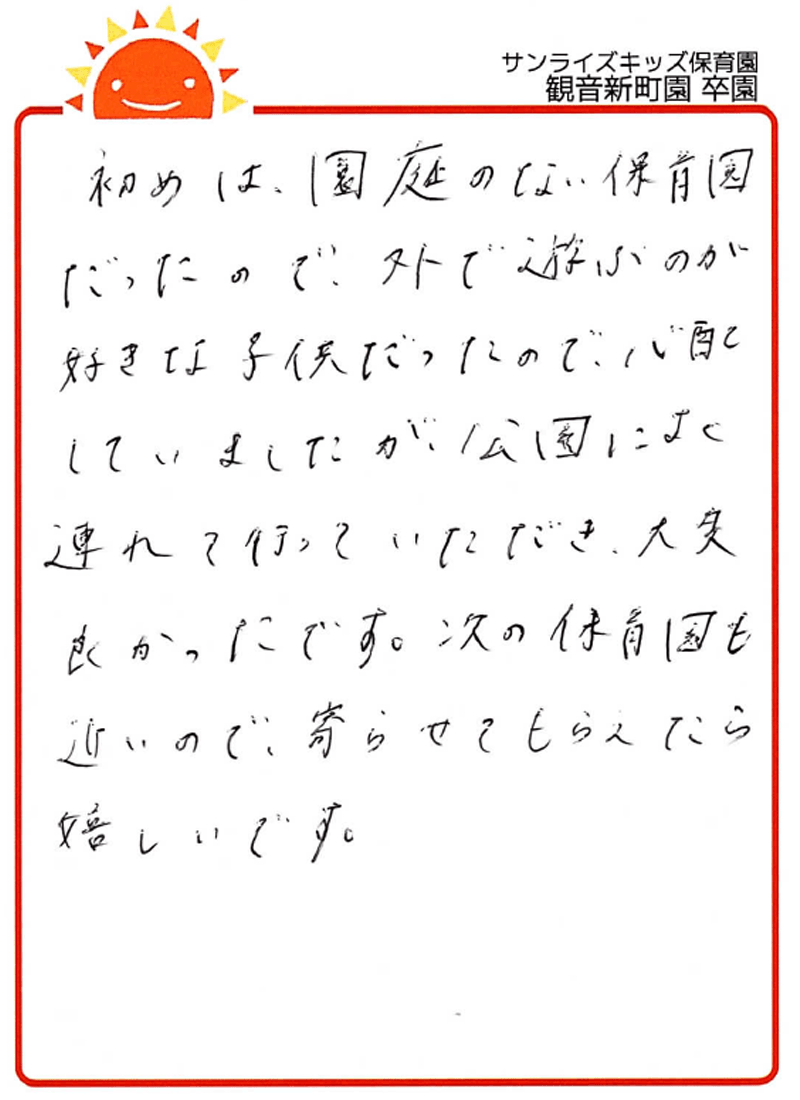 サンライズキッズ保育園
観音新町園 卒園
初めは、園庭のない保育園
だったので、外で遊ぶのが
好きな子供だったので、心配
していましたが、公園によく
連れて行っていただき、大変
良かったです。次の保育園も
近いので、寄らせてもらえたら
嬉しいです。